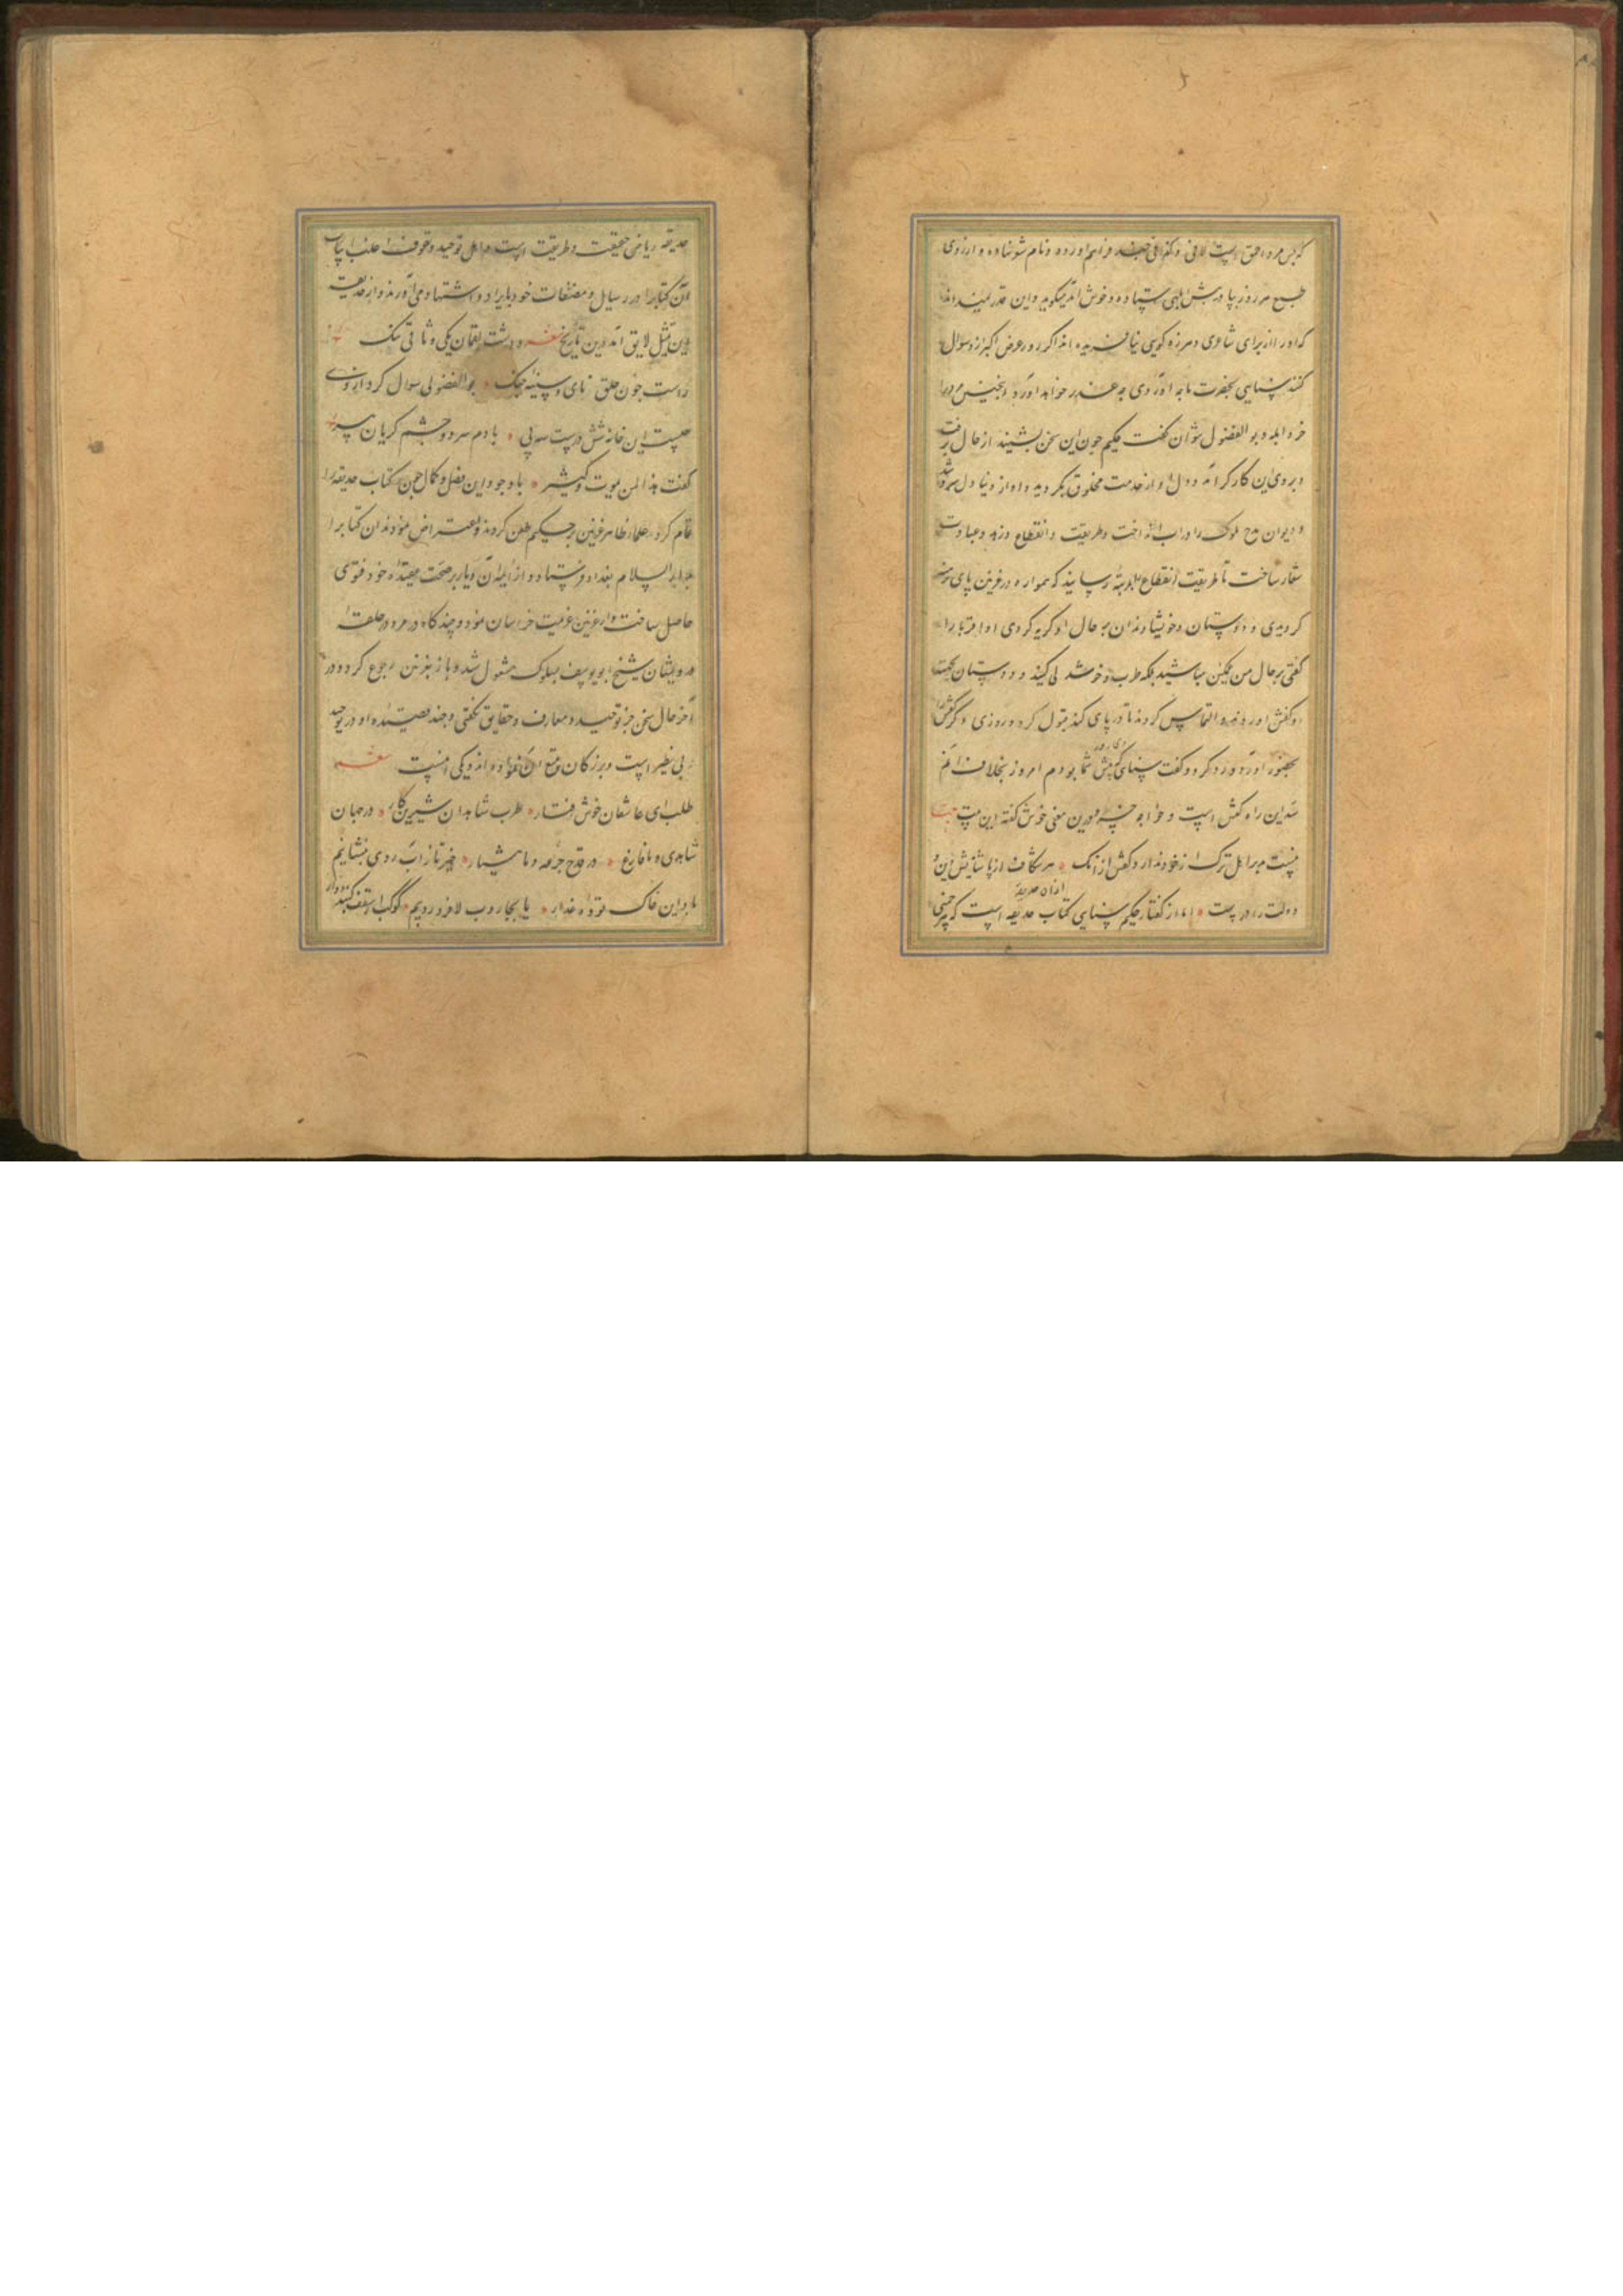 که بس مرد احمق است لافی و گزافی چند فراهم آورده و نام شعر نهاده و از روی
طمع هر روز بپا در پیش ابلهی ستاده و خوش آمد میگوید و این قدر نمیداند
که او را از برای شاعری و هرزه گویی نیافریده اند اگر روز عرض اکبر ازو سوال
کنند سنایی بحضرت ما چه آوردی چه عذر خواهد آورد اینچنین مرد را
جز ابله و بو الفضول نتوان گفت حکیم چون این سخن بشنید از حال برفت
و بروی این کار کر آمد و دل او از خدمت مخلوق بگردید و او از دنیا دل سرد شد
و دیوان مدح ملوک را در آب انداخت و طریقت و انقطاع و زهد و عبادت
شعار ساخت تا طریقت انقطاع بمرتبهٔ رسانید که همواره در غزنین پای برهنه
گردیدی و دوستان و خویشاوندان بر حال او گریه کردی او اقربا را
گفتی بر حال من غمگین مباشید بلکه طرب و خوشدلی کنید و دوستان بجهت
او کفش آورده التماس کردند تا در پای کند قبول کرد و روزی دیگر کفش را
بحضور آورد و رد کرد و گفت سنایی که دی روز پیش شما بودم امروز بخلاف آنم
سد این راه کفش است و خواجه خسرو درین معنی خوش گفته این بیت بیت
نیست مر اهل ترک را زخود ندارد کفش از آنک ه هر شکاف از پا شنایش دین و
دولت را در ست ه اما از گفتار حکیم سنایی کتاب حدیقه است که هر چمنی ازان حدیقه
حدیقه ریاض حقیقت و طریقت است و اهل توحید و تصوف اغلب ابیات
آن کتاب را در رسایل و مصنفات خود بایراد و استشهاد می آورند و از حدیقه
این مثل لایق آمد درین تاریخ شعر داشت لقمان یکی وثاقی تنگ
راست چون حلق نای و سینه چنگ ه بو الفضولی سوال کرد از وی
چیست این خانه شش بدست سه پی ه با دم سرد و چشم گریان پیر
گفت هذا لمن یموت کثیر ه با وجود این فضل و کمال چون کتاب حدیقه را
تمام کرد علماء ظاهر غزنین بر حکیم طعن کردند و اعتراض نمودند آن کتاب را
بدار السلام بغداد فرستاد و از ایمه آن دیار بر صحت عقیده خود فتوی
حاصل ساخت و از غزنین عزمیت خراسان نمود و چند گاه در مرو در حلقهٔ
درویشان شیخ ابو یوسف بسلوک مشغول شد و باز بغزنین رجوع کرد و در
آخر حال سخن جز توحید و معارف و حقایق نگفتی و چند قصیده او در توحید
بی نظیر است و بزرگان تتبع آن نموده اند و یکی اینست شعر
طلب ای عاشقان خوش رفتار ه طرب شاهدان شیرین کار ه در جهان
شاهدی و ما فارغ ه در قدح جرعه و ما هشیار ه خیز تا ز آب روی بنشانیم
باد این خاک توده غدار ه یا بجاروب لا فرو روبیم ه کوکب از سقف گنبد دوار